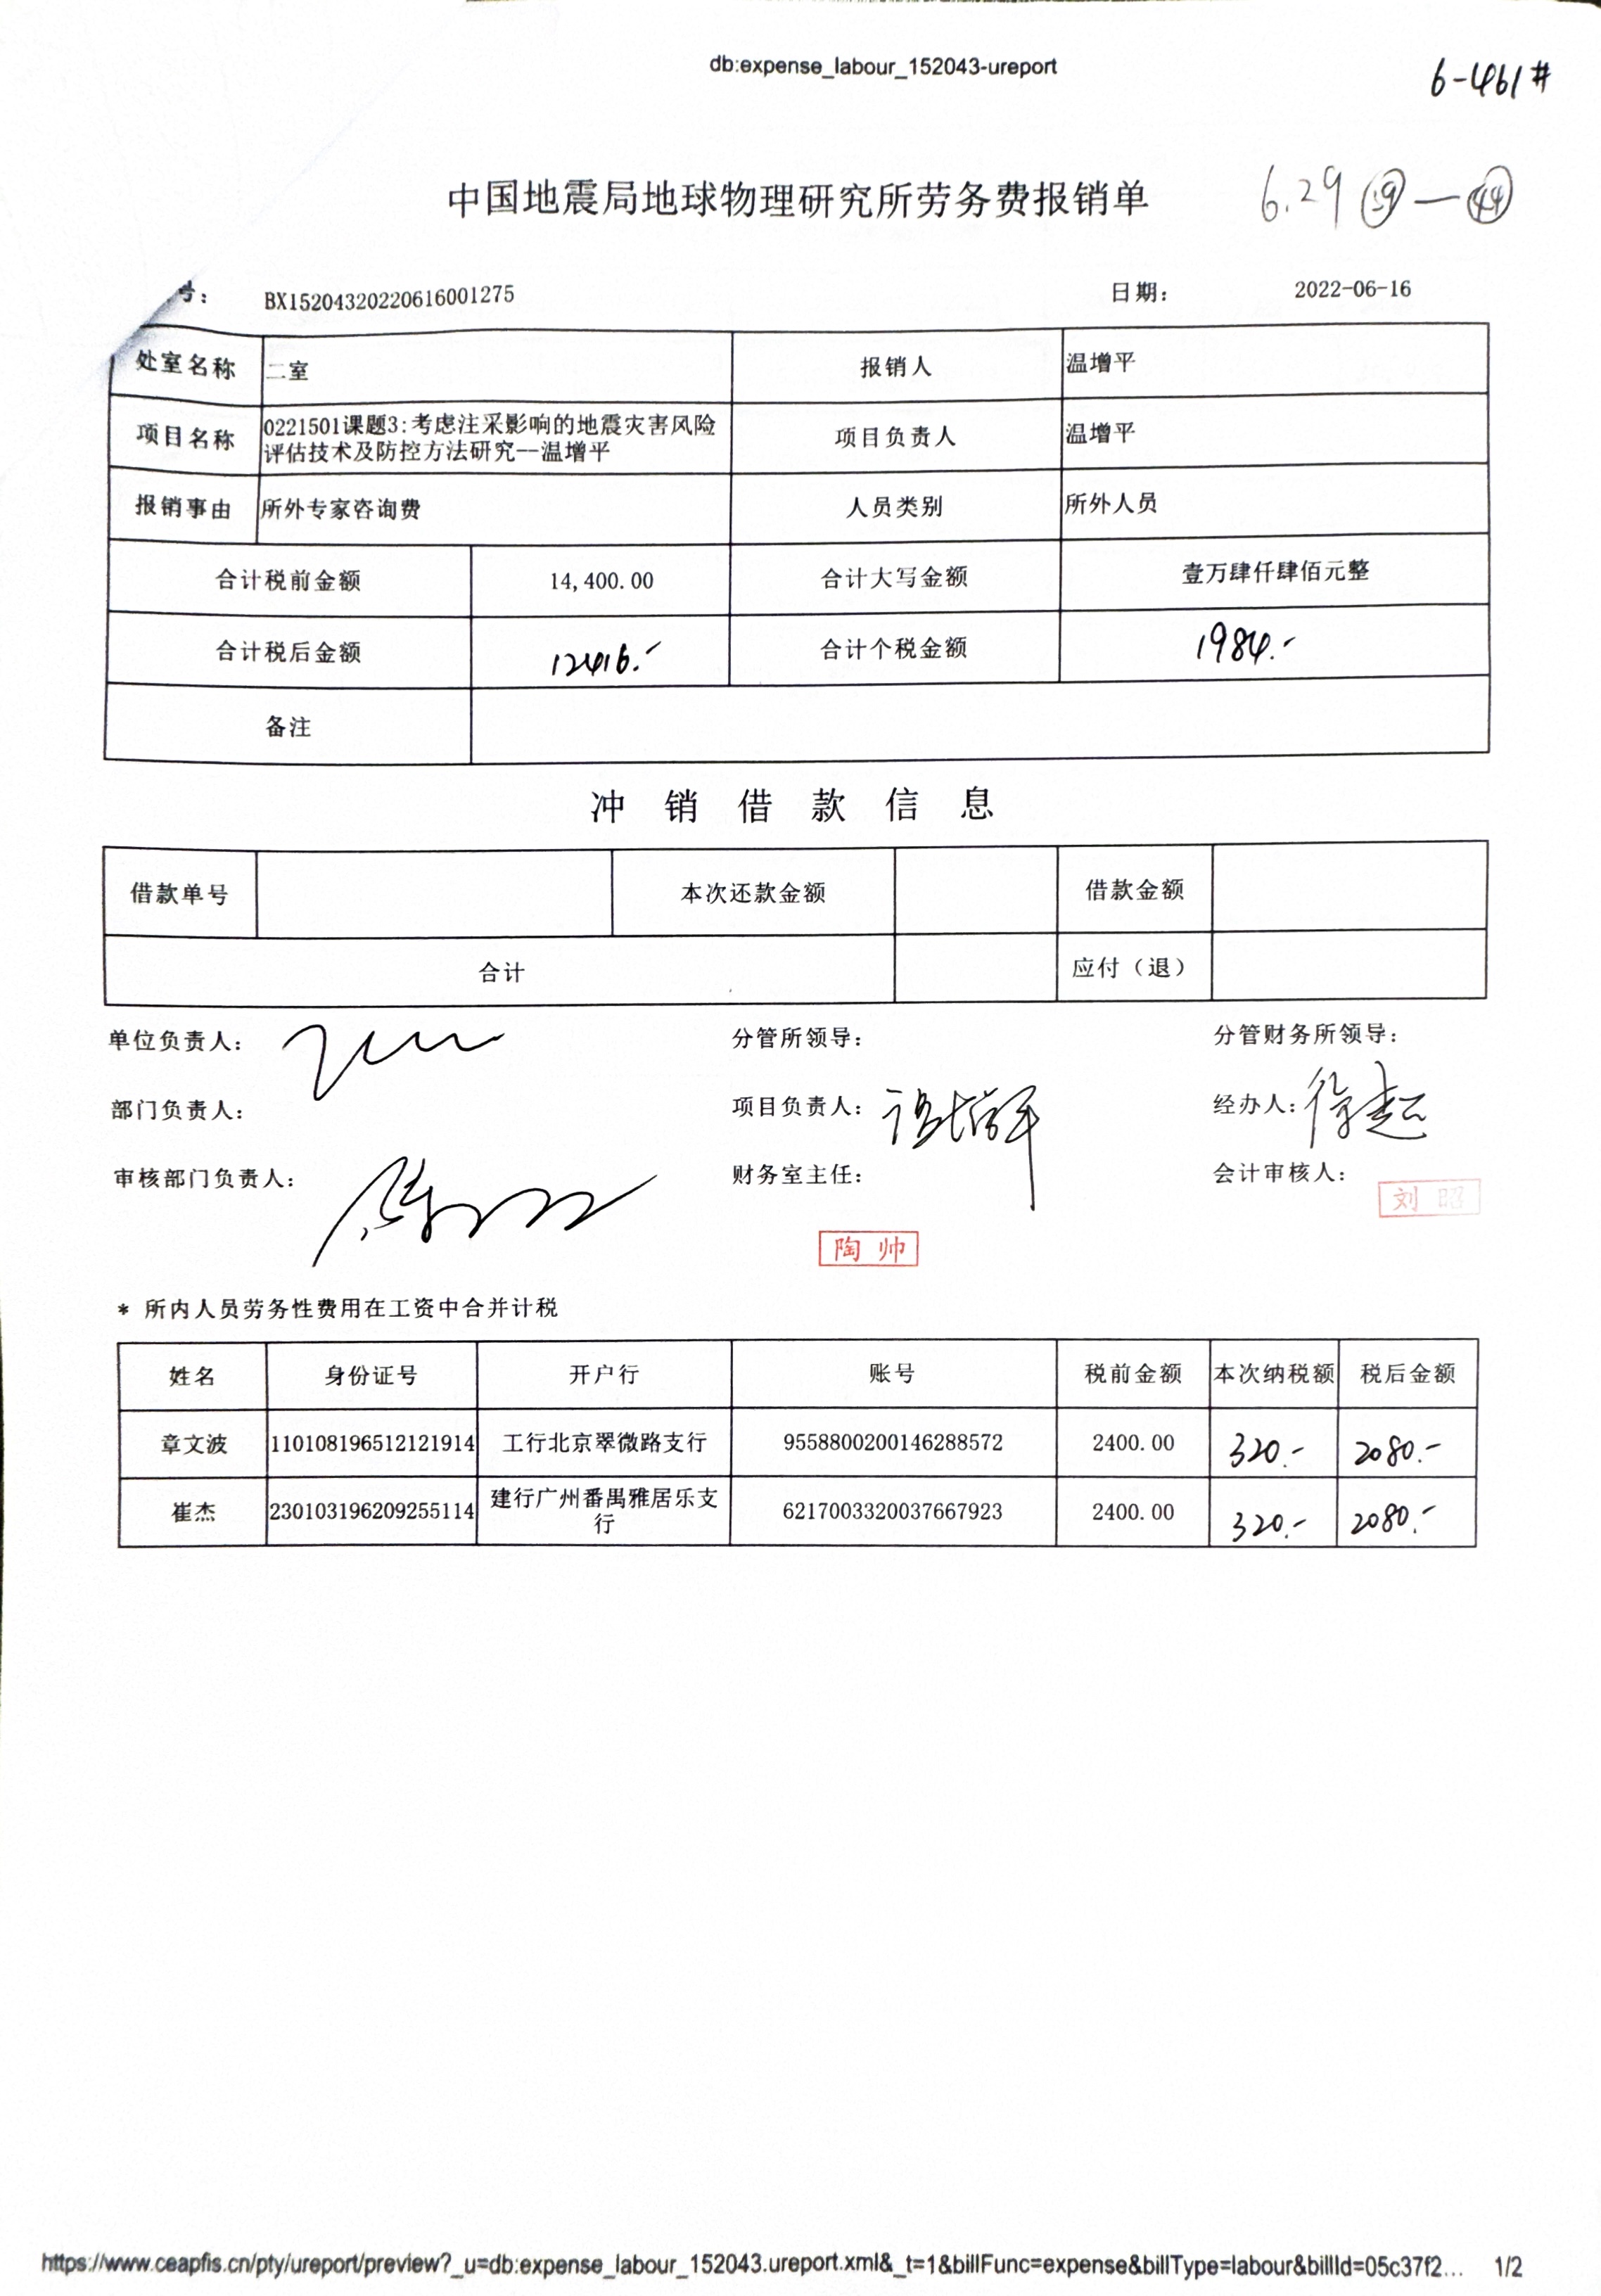 db:expense_labour_152043-ureport
6-461#
中国地震局地球物理研究所劳务费报销单
6.29 39—44
号: BX15204320220616001275 日期: 2022-06-16
处室名称 二室 报销人 温增平
项目名称 0221501课题3:考虑注采影响的地震灾害风险评估技术及防控方法研究--温增平 项目负责人 温增平
报销事由 所外专家咨询费 人员类别 所外人员
合计税前金额 14,400.00 合计大写金额 壹万肆仟肆佰元整
合计税后金额 12416.- 合计个税金额 1984.-
备注
冲销借款信息
借款单号 本次还款金额 借款金额
合计 应付（退）
单位负责人: 分管所领导: 分管财务所领导:
部门负责人: 项目负责人: 经办人:
审核部门负责人: 财务室主任: 会计审核人:
刘 昭
陶 帅
* 所内人员劳务性费用在工资中合并计税
姓名 身份证号 开户行 账号 税前金额 本次纳税额 税后金额
章文波 110108196512121914 工行北京翠微路支行 9558800200146288572 2400.00 320.- 2080.-
崔杰 230103196209255114 建行广州番禺雅居乐支行 6217003320037667923 2400.00 320.- 2080.-
https://www.ceapfis.cn/pty/ureport/preview?_u=db:expense_labour_152043.ureport.xml&_t=1&billFunc=expense&billType=labour&billId=05c37f2... 1/2